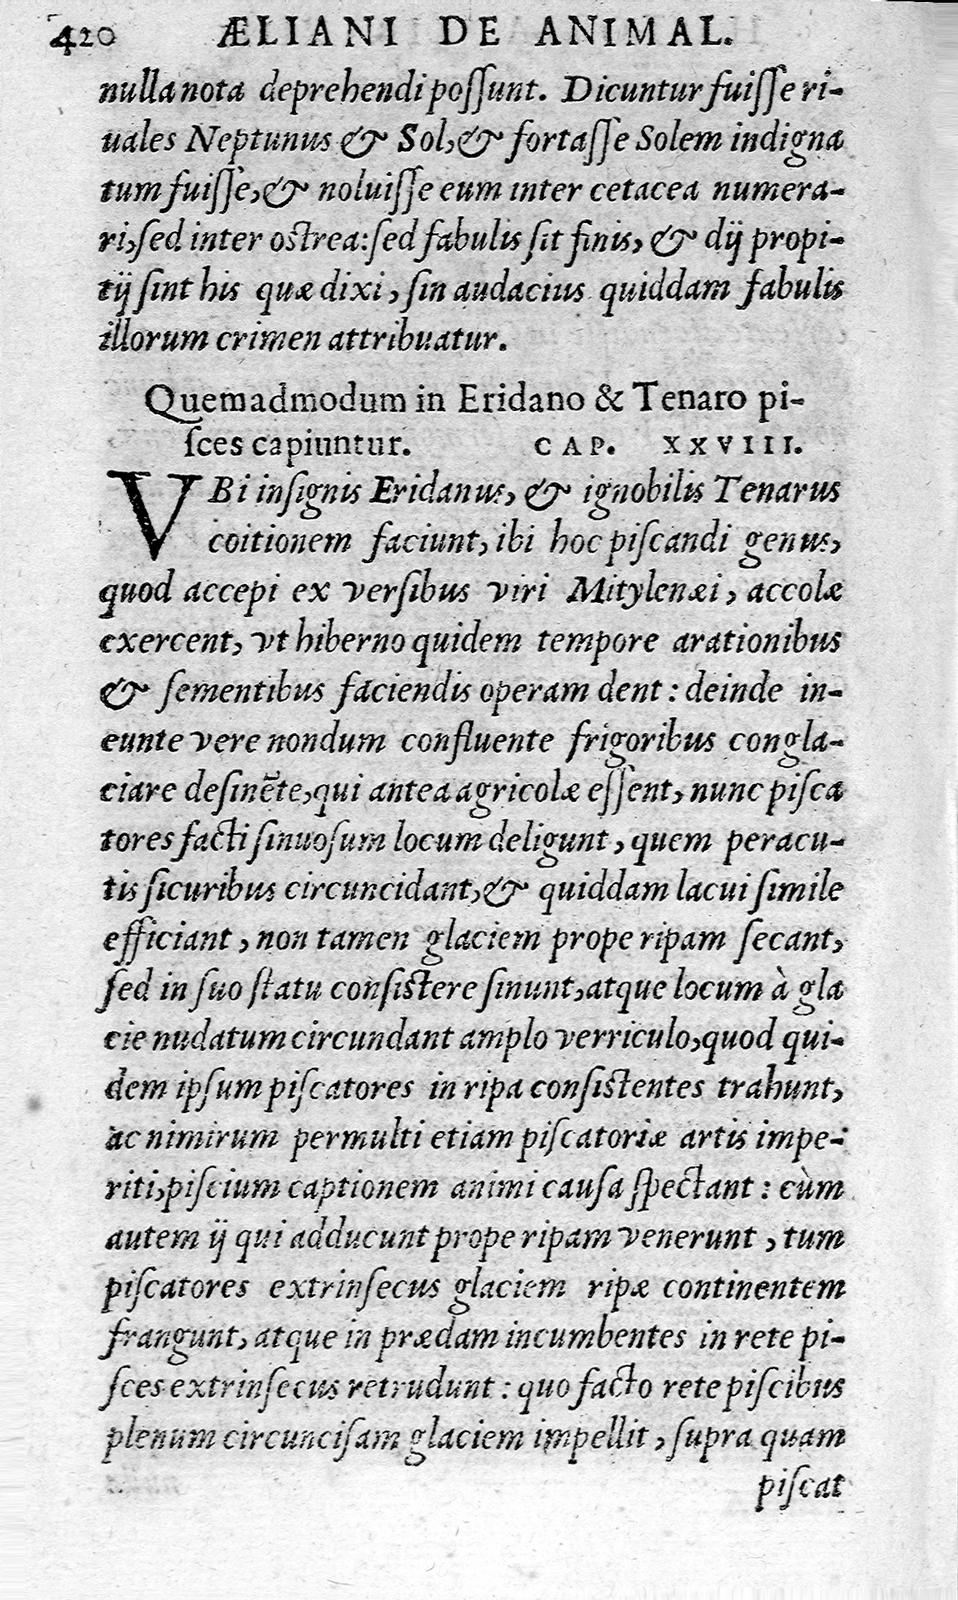 420 ÆLIANI DE ANIMAL.
nulla nota deprehendi poſſunt. Dicuntur fuiſſe ri-
uales Neptunus & Sol, & fortaſſe Solem indigna
tum fuiſſe, & noluiſſe eum inter cetacea numera-
ri, ſed inter oſtrea: ſed fabulis ſit finis, & dij propi-
tij ſint his quæ dixi, ſin audacius quiddam fabulis
illorum crimen attribuatur.
Quemadmodum in Eridano & Tenaro pi-
ſces capiuntur. CAP. XXVIII.
VBi inſignis Eridanus, & ignobilis Tenarus
coitionem faciunt, ibi hoc piſcandi genus,
quod accepi ex verſibus viri Mitylenæi, accolæ
exercent, vt hiberno quidem tempore arationibus
& ſementibus faciendis operam dent: deinde in-
eunte vere nondum confluente frigoribus congla-
ciare deſinẽte, qui antea agricolæ eſſent, nunc piſca
tores facti ſinuoſum locum deligunt, quem peracu-
tis ſicuribus circuncidant, & quiddam lacui ſimile
efficiant, non tamen glaciem prope ripam ſecant,
ſed in ſuo ſtatu conſiſtere ſinunt, atque locum à gla
cie nudatum circundant amplo verriculo, quod qui-
dem ipſum piſcatores in ripa conſiſtentes trahunt,
ac nimirum permulti etiam piſcatoriæ artis impe-
riti, piſcium captionem animi cauſa ſpectant: cùm
autem ij qui adducunt prope ripam venerunt, tum
piſcatores extrinſecus glaciem ripæ continentem
frangunt, atque in prædam incumbentes in rete pi-
ſces extrinſecus retrudunt: quo facto rete piſcibus
plenum circunciſam glaciem impellit, ſupra quam
piſcat